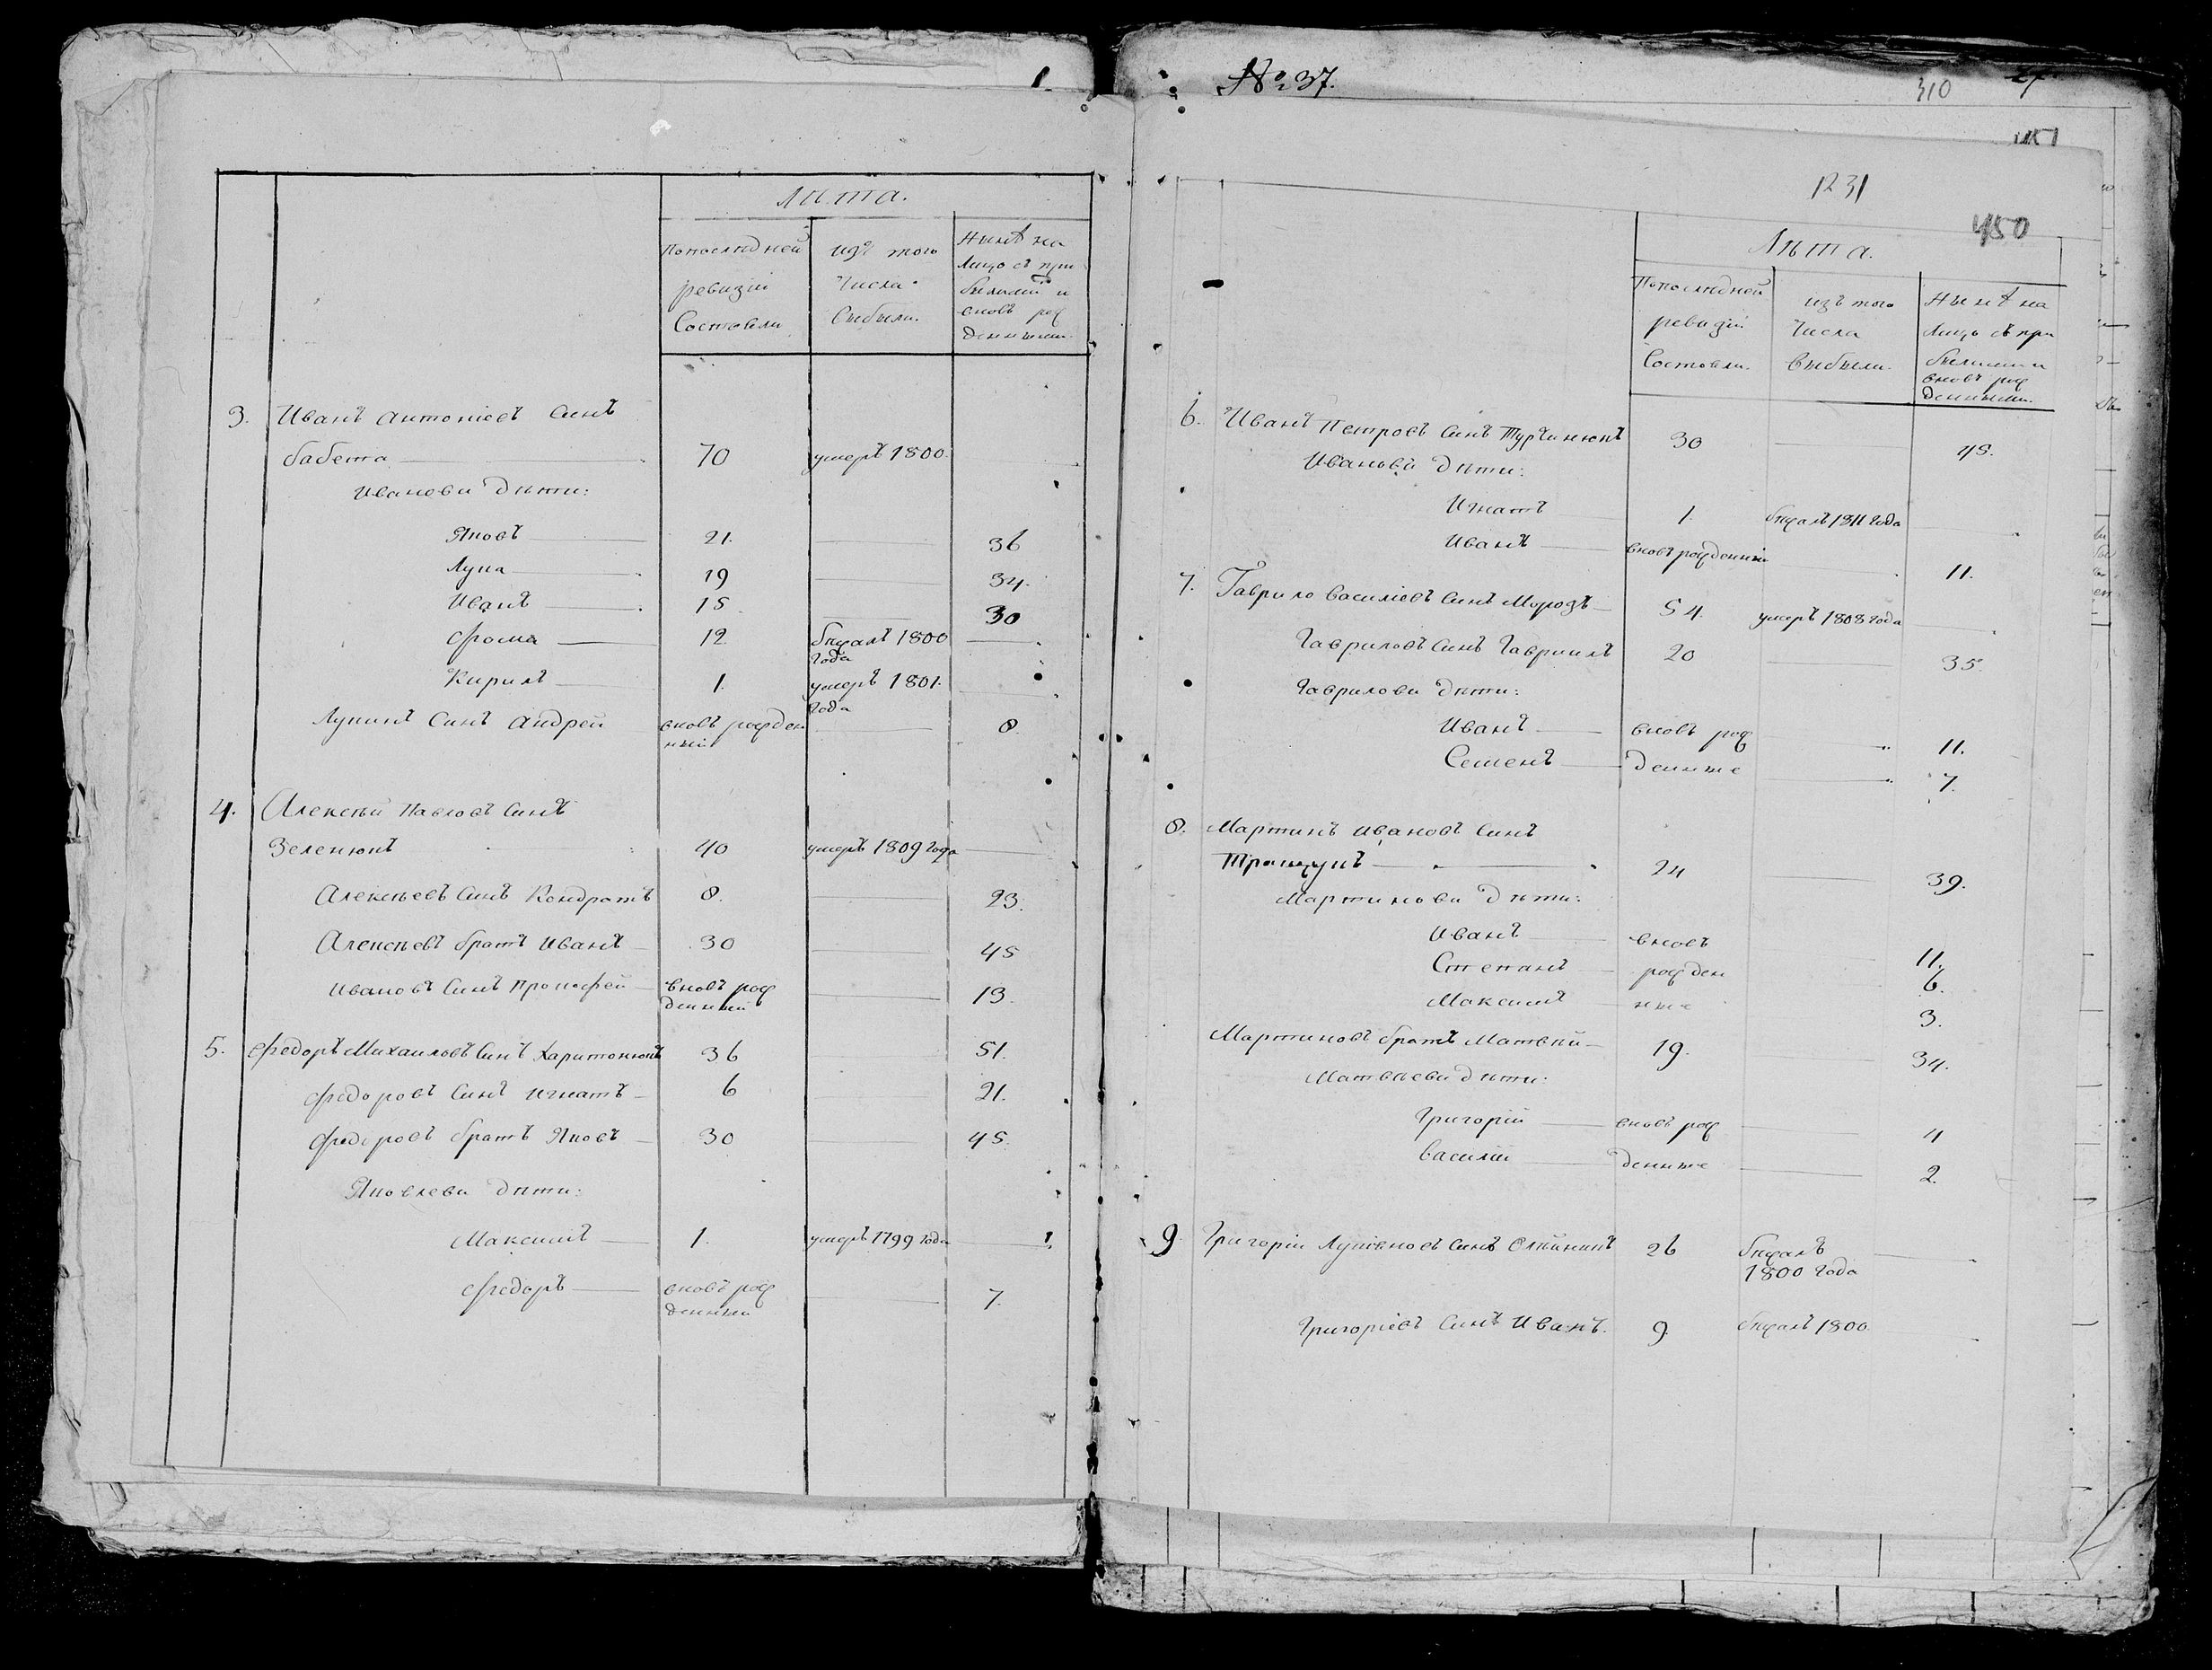 1.
Лѣта.
По последней ревизіи Состояли
изъ того Числа Выбыли.
Нынѣ на Лицо съ прибылими и вновь рожденными.
3. Иванъ Антоніевъ Синъ
бабета 70 умеръ 1800.
Иванови Дѣти:
Яковъ 21. 36
Лука 19 34.
Иванъ 15 30
Фома 12 бѣжалъ 1800 года
Кирилъ 1. умеръ 1801. года
Лукинъ Синъ Андрей вновь рожденный 8.
4. Алексѣй Павловъ Синъ
Зеленюкъ 40 умеръ 1809 года
Алексѣевъ Синъ Кондратъ 8. 23.
Алексѣевъ братъ Иванъ 30 45
Ивановъ Синъ Прокофей вновь рожденный 13.
5. Федоръ Михаиловъ Синъ Харитонюкъ 36 51.
Федоровъ Синъ Игнатъ 6 21.
Федоровъ братъ Яковъ 30 45.
Яковлеви Дѣти:
Максимъ 1. умеръ 1799 года
Федоръ вновь рожденный 7.
№ 37.
310
1231
450
Лѣта.
По последней ревизіи Состояли.
изъ того Числа Выбыли.
Нынѣ на Лицо съ прибылими и вновь рожденными.
6. Иванъ Петровъ Синъ Турчинюкъ 30 45.
Иванови Дѣти:
Игнатъ 1. бѣжалъ 1811 года
Иванъ вновь рожденній 11.
7. Гаврило Василіевъ Синъ Морозъ 54. умеръ 1808 года
Гавриловъ Синъ Гавриилъ 20 35.
Гаврилови Дѣти:
Иванъ вновь рож 11.
Семенъ денные 7.
8. Мартинъ Ивановъ Синъ
Тращукъ 24 39.
Мартинови Дѣти:
Иванъ вновь 11.
Степанъ рожден 6.
Максимъ ные 3.
Мартиновъ братъ Матвѣй 19. 34.
Матвѣеви Дѣти:
Григорій вновь рож 4
Василій денные 2.
9. Григорій Синъ 26 бѣжалъ
1800 года
Григоріевъ Синъ Иванъ. 9. бѣжалъ 1800.